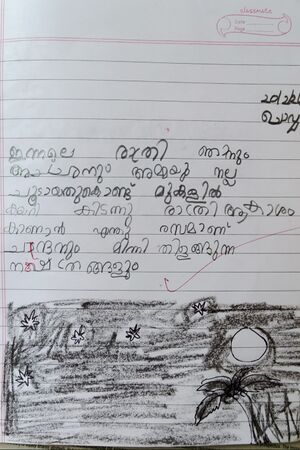 classmate
Date
Page
ഇന്നലെ രാത്രി ഞാനും
അച്ഛനും അമ്മയു നല്ല
ചൂടായതുകൊണ്ട് മുകളിൽ
കയറി കിടന്നു രാത്രി ആകാശം
കാണാൻ എന്തു രസമാണ്
ചന്ദ്രനും മിന്നി തിളങ്ങുന്ന
നക്ഷത്രങ്ങളും